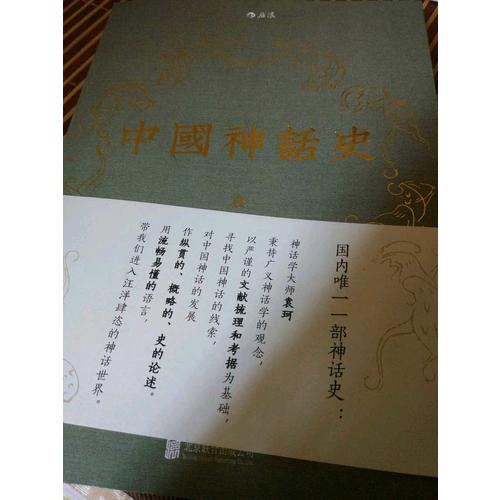 后浪
中國神話史
袁
国内唯一一部神话史：
神话学大师袁珂
秉持广义神话学的观念，
以严谨的文献梳理和考据为基础，
寻找中国神话的线索，
对中国神话的发展
作纵贯的、概略的、史的论述。
用流畅易懂的语言，
带我们进入汪洋肆恣的神话世界。
北京联合出版公司